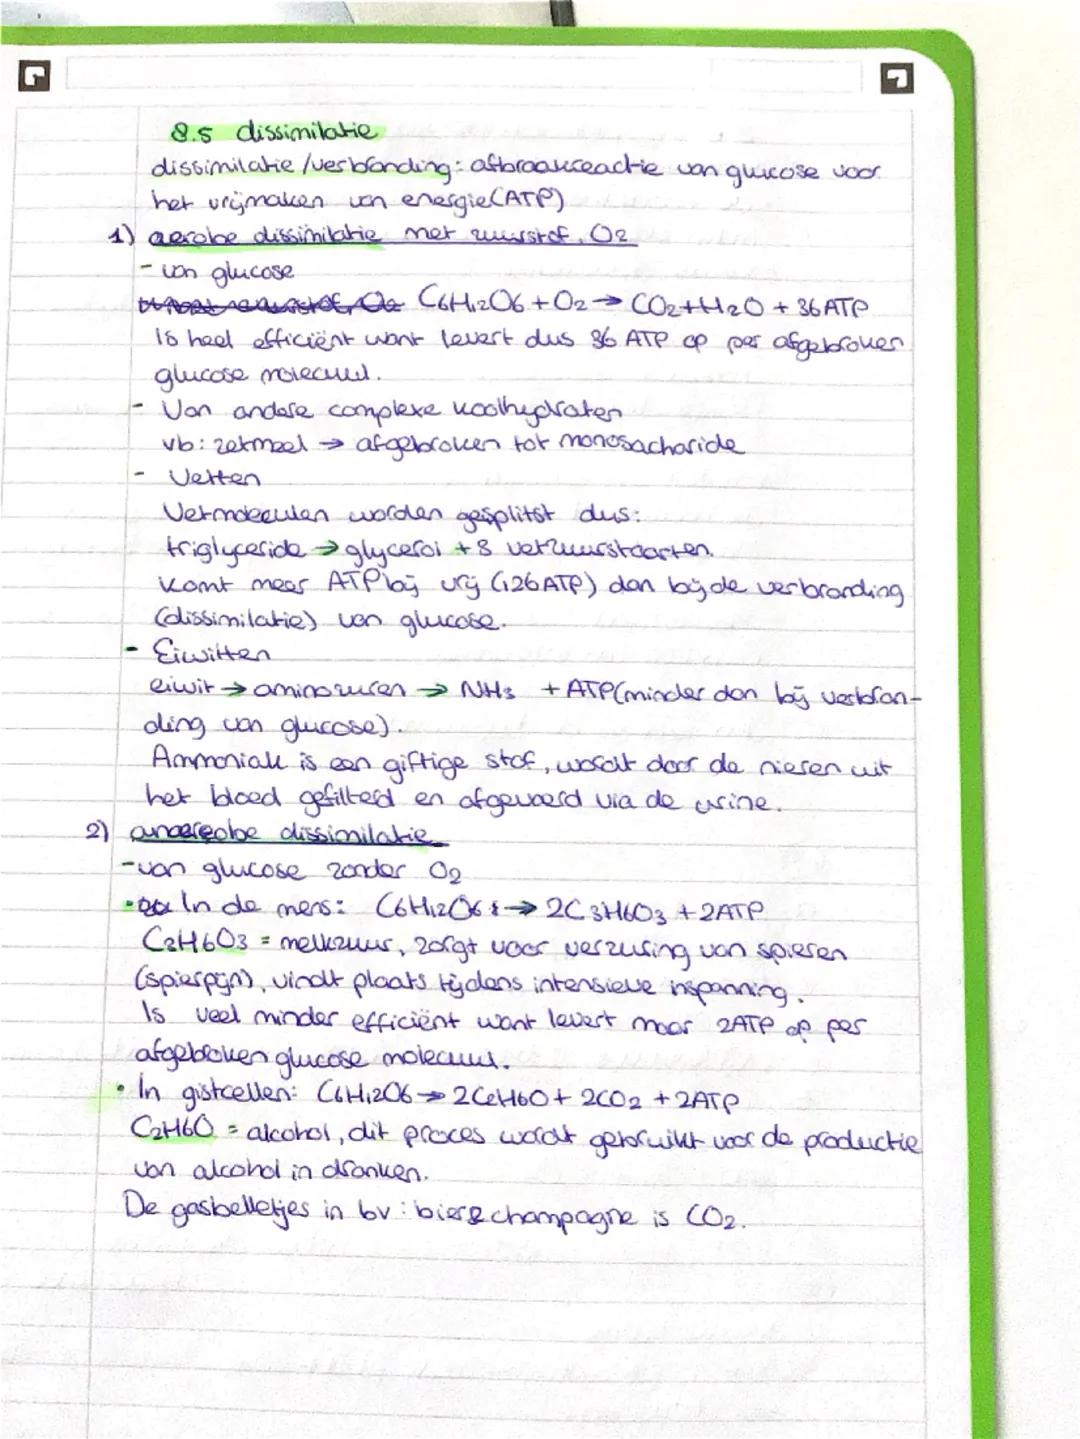 8.5 dissimilatie
dissimilatie/verbranding: afbraakreactie van glucose voor
het vrijmaken van energie(ATP)
1) aerobe dissimilatie met zuurstof, O2
- van glucose
C6H12O6 + O2 → CO2+H2O + 36 ATP
Is heel efficiënt want levert dus 36 ATP op per afgebroken
glucose molecuul.
- Van andere complexe koolhydraten
vb: zetmeel → afgebroken tot monosacharide
- Vetten
Vetmoleculen worden gesplitst dus:
triglyceride → glycerol + 3 vetzuurstaarten.
Komt meer ATP bij vrij (126 ATP) dan bij de verbranding
(dissimilatie) van glucose.
- Eiwitten
eiwit → aminozuren → NH3 + ATP(minder dan bij verbran-
ding van glucose).
Ammoniak is een giftige stof, wordt door de nieren uit
het bloed gefilterd en afgevoerd via de urine.
2) anaereobe dissimilatie
-van glucose zonder O2
• In de mens: C6H12O6 → 2C3H6O3 + 2ATP
C3H6O3 = melkzuur, zorgt voor verzuring van spieren
(spierpijn), vindt plaats tijdens intensieve inspanning.
Is veel minder efficiënt want levert maar 2ATP op per
afgebroken glucose molecuul.
• In gistcellen: C6H12O6 → 2C2H6O + 2CO2 + 2ATP
C2H6O = alcohol, dit proces wordt gebruikt voor de productie
van alcohol in dranken.
De gasbelletjes in bv: bier & champagne is CO2.